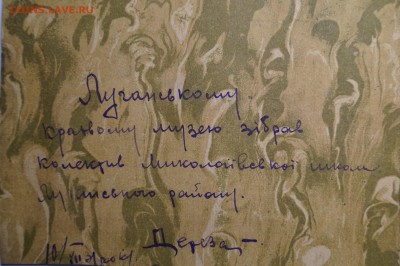 COINS.LAVE.RU
Луганському
краєвому музею зібрав
колектив Миколаївської школи
району.